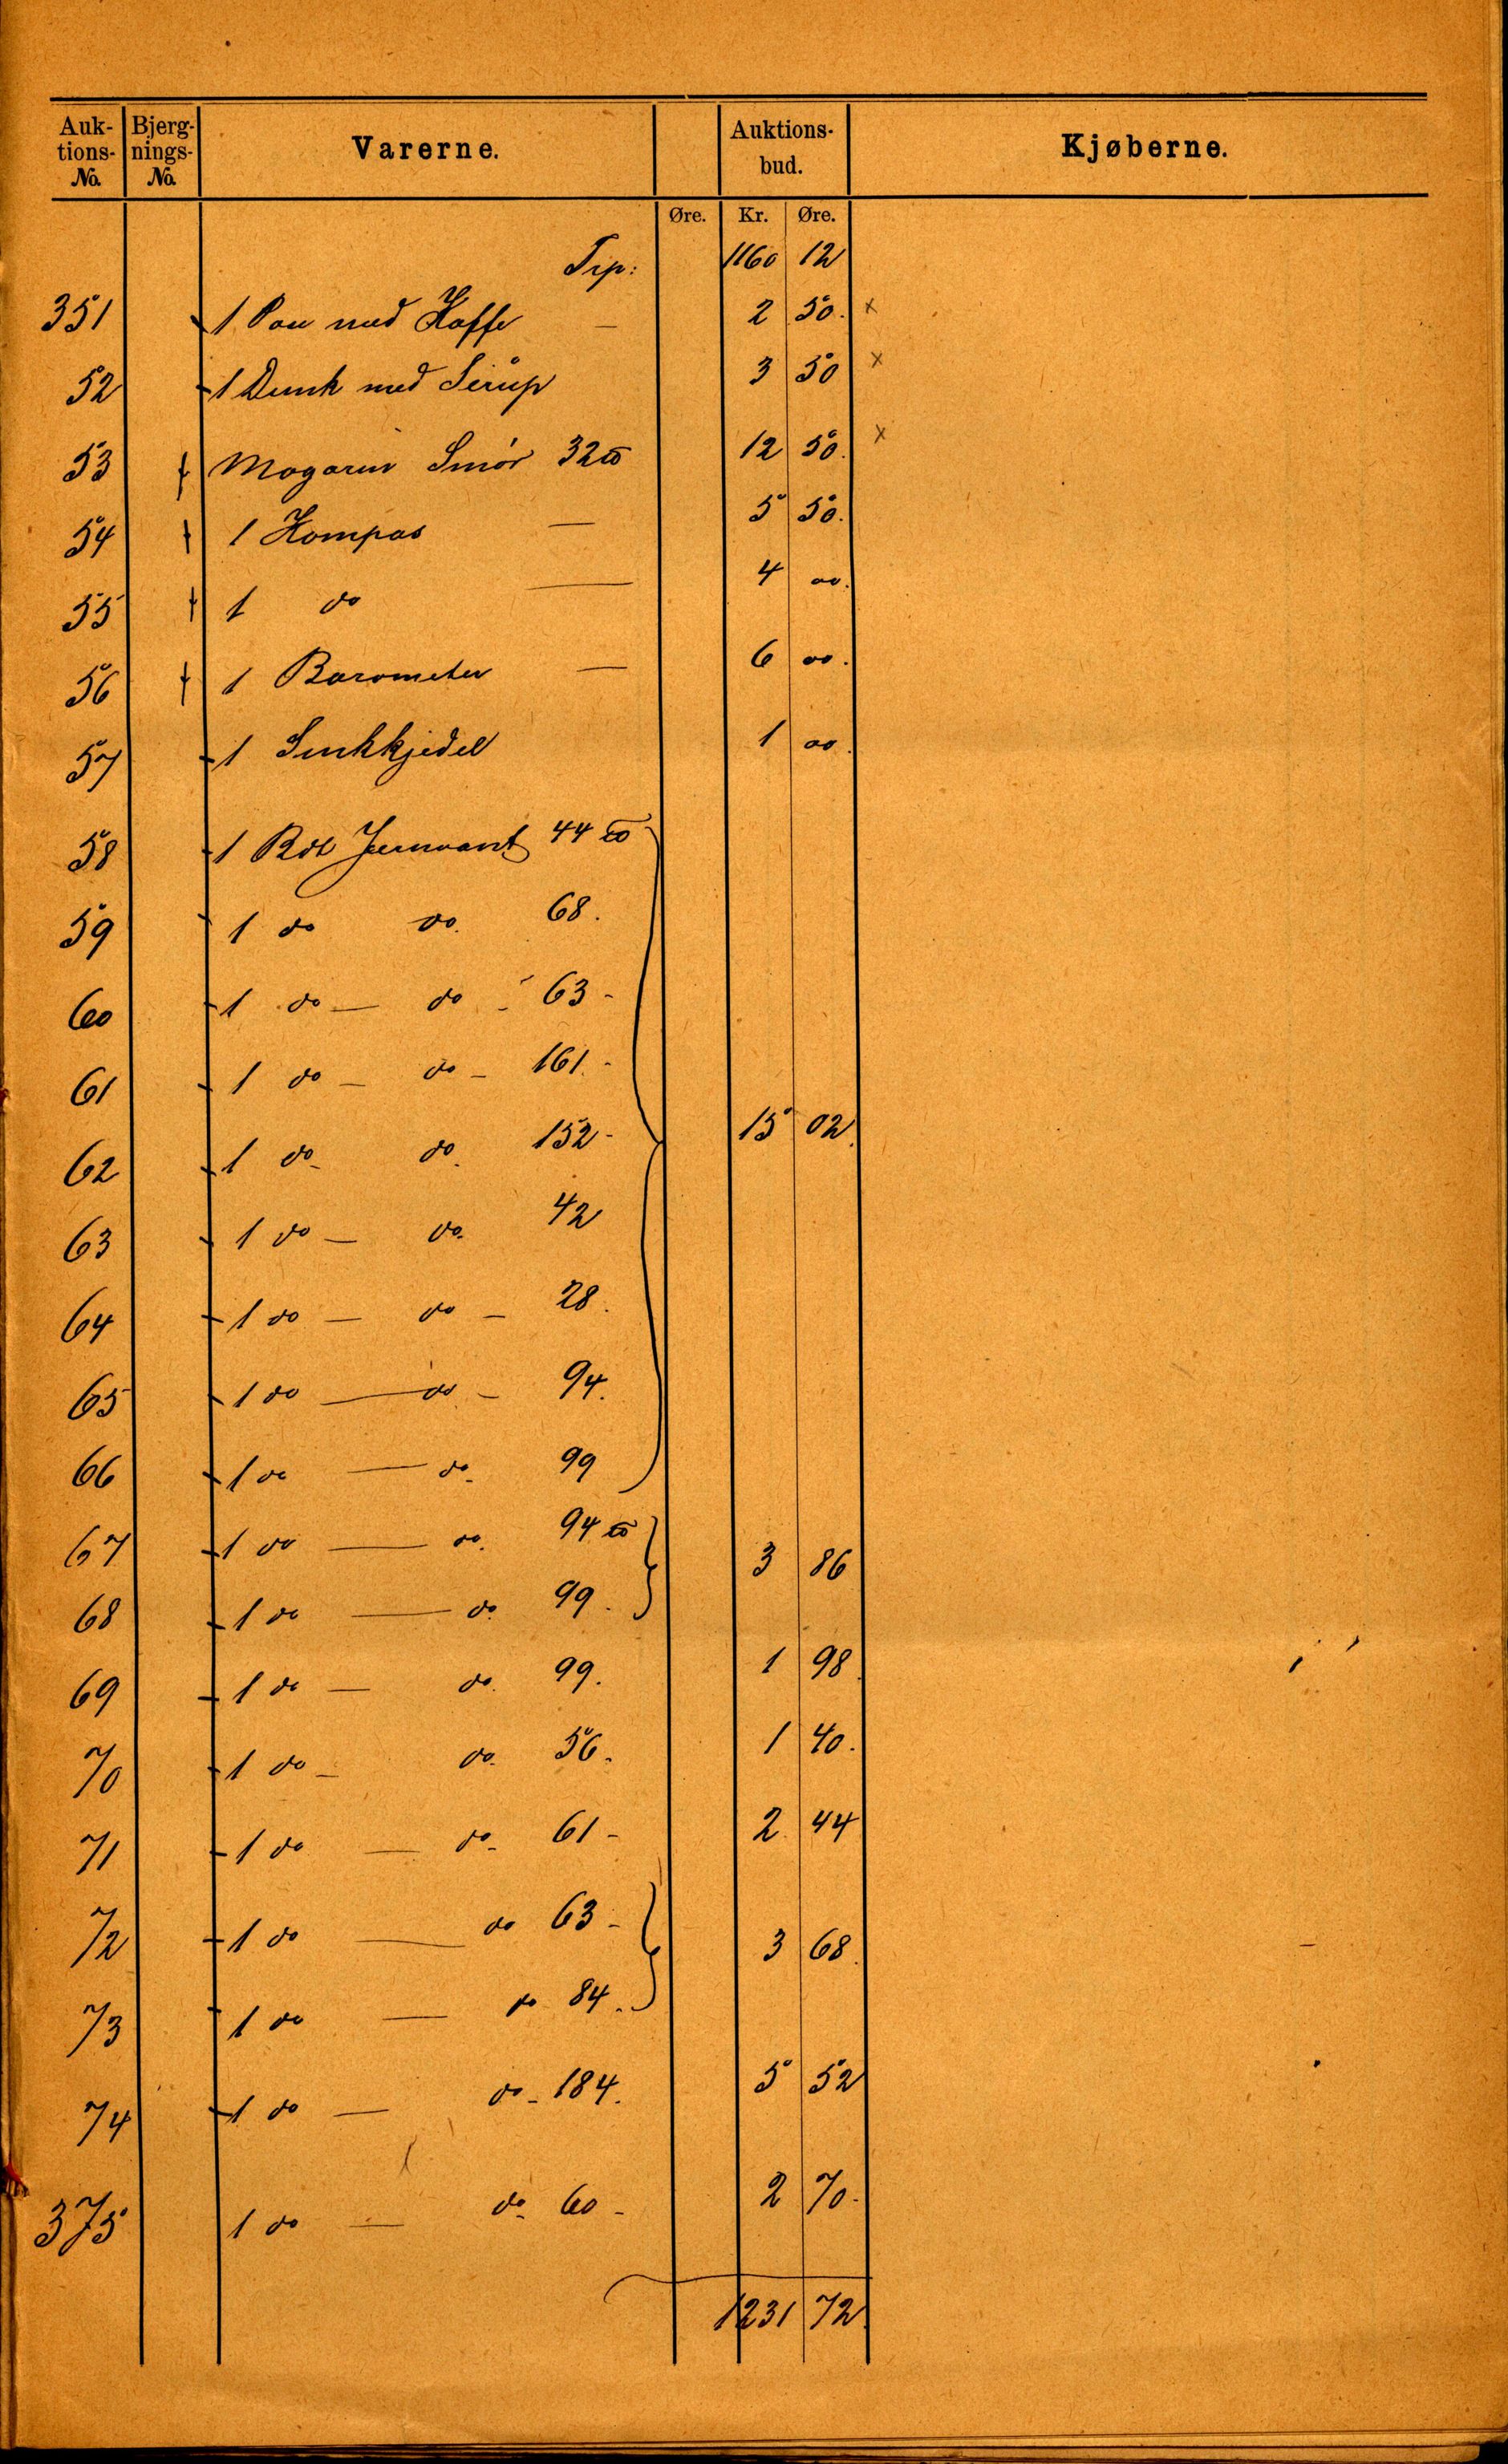 Auk- Bjerg- Auktions-
tions- nings- Varerne. bud. Kjøberne.
No. No.
Øre. Kr. Øre.
Trp: 1160 12
351 1 Pose med Kaffe — 2 50. x
52 1 Dunk med Sirup 3 50 x
53 Magarin Smør 32 ℔ 12 50. x
54 1 Kompas — 5 50.
55 1 do — 4 00.
56 1 Barometer — 6 00.
57 1 Sinkkjedel 1 00.
58 1 Rdl Jernvant 44 ℔
59 1 do do. 68.
60 1 do — do - 63 -
61 1 do — do - 161. -
62 1 do - do. 152 - 15 02.
63 1 do — do. 42
64 1 do — do — 28.
65 1 do — do - 94.
66 1 do — do. 99
67 1 do — do. 94 ℔ 3 86
68 1 do — do. 99.
69 1 do — do. 99. 1 98.
70 1 do - do. 56. 1 40.
71 1 do — do - 61 - 2 44
72 1 do — do 63 - 3 68.
73 1 do — do 84.
74 1 do — do - 184. 5 52
375 1 do — do. 60 - 2 70.
1231 72.